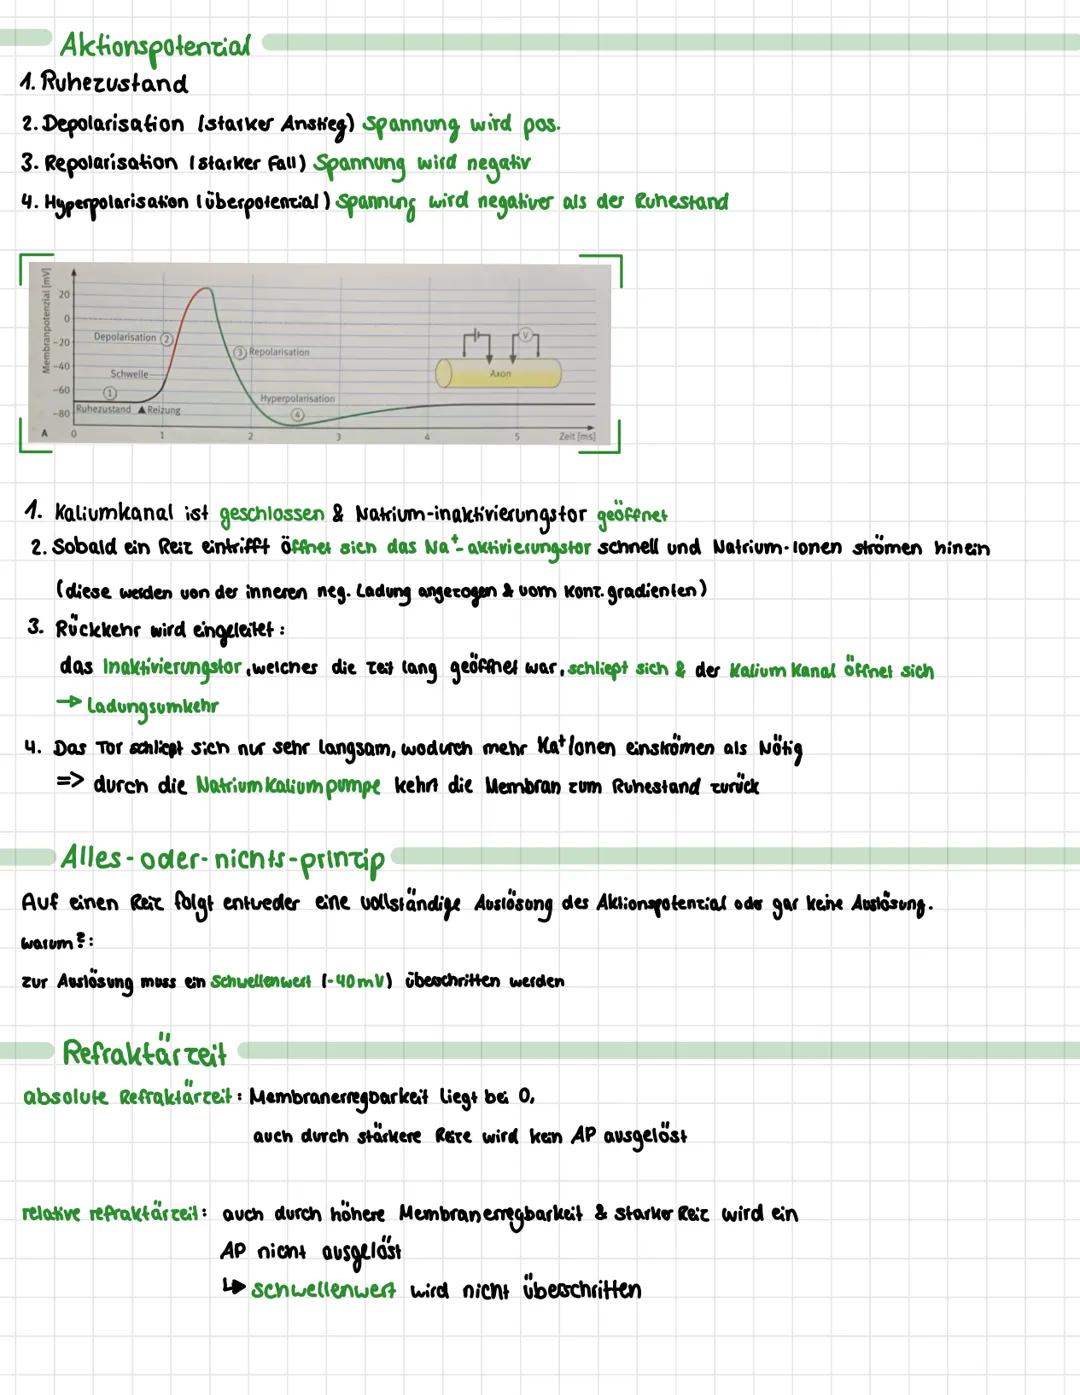 Aktionspotenzial
1. Ruhezustand
2. Depolarisation (starker Anstieg) Spannung wird pos.
3. Repolarisation (starker Fall) Spannung wird negativ
4. Hyperpolarisation (überpotenzial) Spannung wird negativer als der Ruhestand
Membranpotenzial [mV]
20
0
-20
-40
-60
-80
Depolarisation 2
3 Repolarisation
Schwelle
1
Ruhezustand ▲ Reizung
Hyperpolarisation
4
V
Axon
A 0 1 2 3 4 5 Zeit [ms]
1. Kaliumkanal ist geschlossen & Natrium-inaktivierungstor geöffnet
2. Sobald ein Reiz eintrifft öffnet sich das Na⁺-aktivierungstor schnell und Natrium-Ionen strömen hinein
(diese werden von der inneren neg. Ladung angezogen & vom Konz.gradienten)
3. Rückkehr wird eingeleitet:
das Inaktivierungstor, welches die Zeit lang geöffnet war, schließt sich & der Kalium Kanal öffnet sich
→ Ladungsumkehr
4. Das Tor schließt sich nur sehr langsam, wodurch mehr Ka⁺Ionen einströmen als Nötig
=> durch die Natrium Kalium pumpe kehrt die Membran zum Ruhestand zurück
Alles-oder-nichts-prinzip
Auf einen Reiz folgt entweder eine vollständige Auslösung des Aktionspotenzial oder gar keine Auslösung.
warum?:
zur Auslösung muss ein Schwellenwert (-40mV) überschritten werden
Refraktärzeit
absolute Refraktärzeit: Membranerregbarkeit liegt bei 0,
auch durch stärkere Reize wird kein AP ausgelöst
relative refraktärzeit: auch durch höhere Membranerregbarkeit & starker Reiz wird ein
AP nicht ausgelöst
↳ schwellenwert wird nicht überschritten